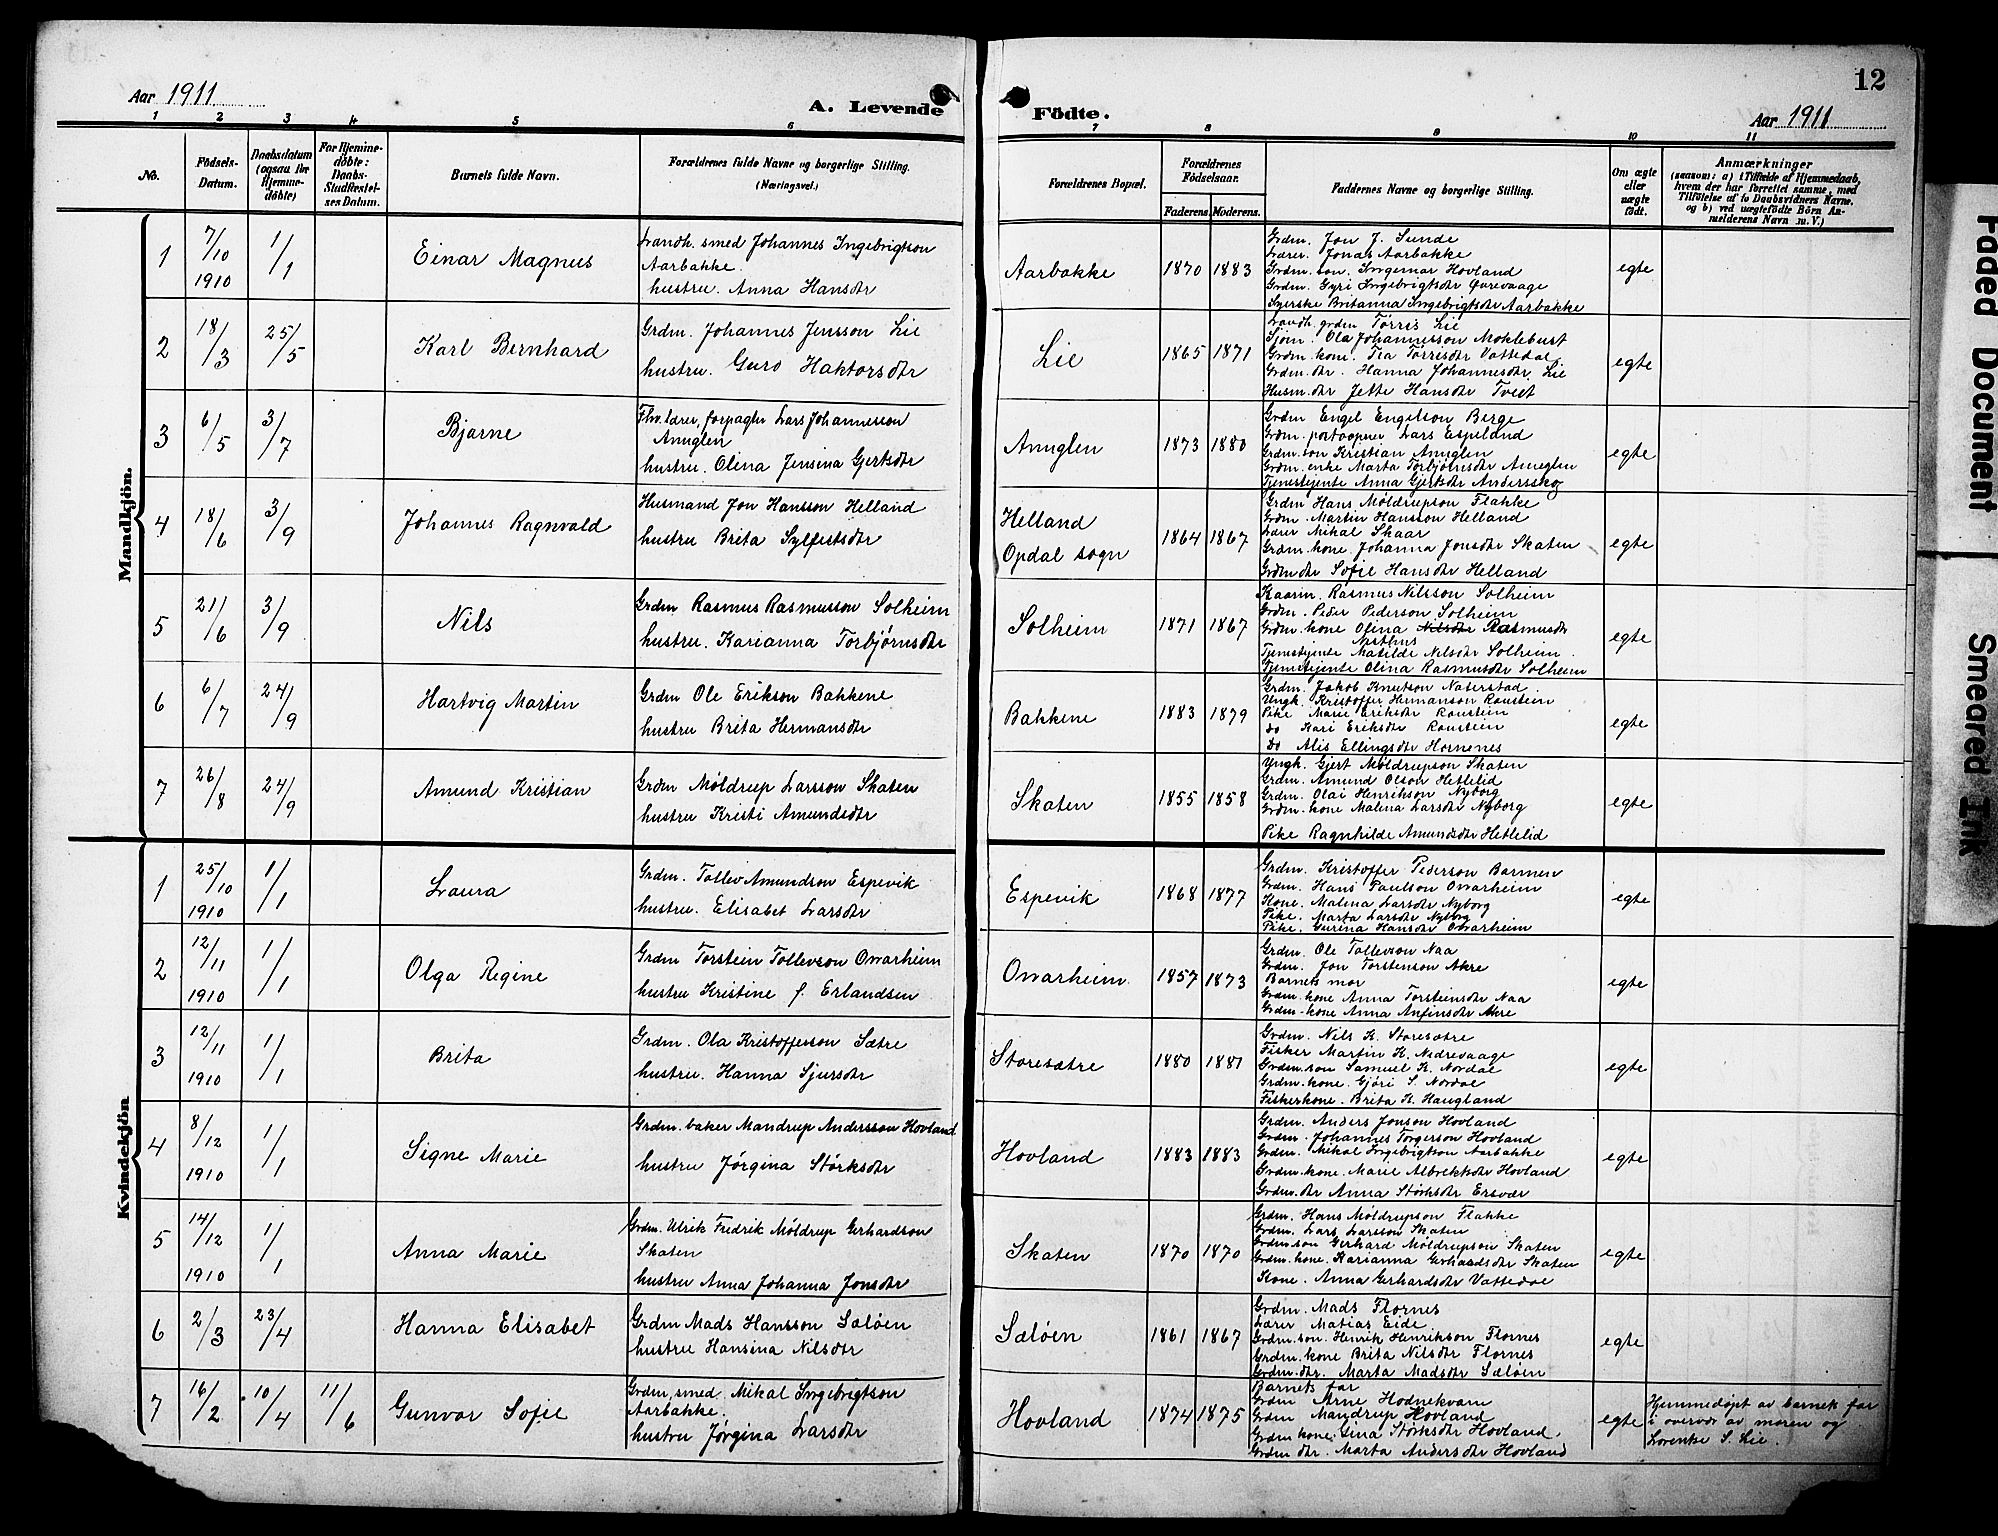 12
Aar 1911
A. Levende
Födte.
Aar 1911
1 2 3 4 5 6 7 8 9 10 11
No.
Födsels-
Datum.
Daabsdatum
(ogsaa for
Hjemme-
döbte)
For Hjemme-
döbte:
Daabs-
Stadfæstel-
ses Datum.
Barnets fulde Navn.
Forældrenes fulde Navne og borgerlige Stilling.
(Næringsvei.)
Forældrenes Bopæl.
Forældrenes
Födselsaar.
Faderens Moderens.
Faddernes Navne og borgerlige Stilling.
Om ægte
eller
uægte
födt.
Anmærkninger
(saasom: a) i Tilfælde af Hjemmedaab,
hvem der har forrettet samme, med
Tilföielse af to Daabsvidners Navne.
og b) ved uægtefödte Börn An-
melderens Navn m. V.)
Mandkjön.
1 7/10 1910 1/1 Einar Magnus
Landh. smed Johannes Ingebrigtson
Aarbakke.
hustru. Anna Hansdtr
Aarbakke 1870 1883
Grdm. Jon J. Sunde
Lærer. Jonas Aarbakke
Grdm. søn. Ingemar Hovland
Grdm. Gyri Ingebrigtsdtr Øvrevaage
Syerske Britanna Ingebrigtsdtr Aarbakke
egte
2 18/3 25/5 Karl Bernhard
Grdm. Johannes Jensson Lie
hustru. Guro Haktorsdtr
Lie 1865 1871
Landh. grdm Tørris Lie
Sjøm. Ola Johannesson Moklebust
Grdm. kone. Tia Tørresdtr Vattedal
Grdm. dtr. Hanna Johannesdtr. Lie
Husm. dtr Jette Hansdtr Tveit
egte
3 6/5 3/7 Bjarne
Fhv. lærer, forpagter Lars Johannesson
Annglen
hustru. Olina Jensina Gjertsdtr
Annglen 1873 1880
Grdm Engel Engelson Berge
Grdm. postaapner Lars Espeland
Grdm. søn Kristian Annglen
Grdm. enke Marta Torbjørnsdtr Anneglen
Tjenestjente Anna Gjertsdtr Andersskog
egte
4 18/6 3/9 Johannes Ragnvald
Husmand Jon Hansson Helland
hustru Brita Sylfestsdtr
Helland
Opdal sogn 1864 1867
Grdm Hans Møldrupson Flakke
Grdm. Martin Hansson Helland
Lærer Mikal Skaar
Grdm. kone. Johanna Jonsdtr Skaten
Grdm dtr Sofie Hansdtr Helland
egte
5 21/6 3/9 Nils
Grdm Rasmus Rasmusson Solheim
hustru. Karianna Torbjørnsdtr
Solheim 1871 1867
Kaarm. Rasmus Nilsson Solheim
Grdm. Peder Pederson Solheim
Grdm. kone Olina Nilsdtr Rasmusdtr
Tjenestjente Matilde Nilsdtr Solheim
Tjenestjente Olina Rasmusdtr Solheim
egte
6 6/7 24/9 Hartvig Martin
Grdm Ole Erikson Bakkene
hustru Brita Hermansdtr
Bakkene 1883 1879
Grdm. Jakob Knutson Naterstad
Ungk. Kristoffer Hermanson Raustein
Pike Marie Eriksdtr Raustein
Do Kari Eriksdtr Raustein
Do Alis Ellingsdtr Hornenes
egte
7 26/8 24/9 Amund Kristian
Grdm Møldrup Larsson Skaten
hustru Kristi Amundsdtr
Skaten 1855 1858
Yngk. Gjert Møldrupson Skaten
Grdm. Amund Olson Hetlelid
Grdm. Olai Henrikson Nyborg
Grdm. kone Malena Larsdtr Nyborg
Pike Ragnhilde Amundsdtr Hetlelid
egte
Kvindekjön
1 25/10 1910 1/1 Laura
Grdm. Tollev Amundson Espevik
hustru. Elisabet Larsdtr
Espevik 1868 1877
Grdm. Kristoffer Pederson Barmen
Grdm. Hans Paulson Onarheim
Kone. Malena Larsdtr Nyborg
Pike. Marta Larsdtr Nyborg
Pike. Gurina Hansdtr Onarheim
egte
2 12/11 1910 1/1 Olga Regine
Grdm Torstein Tollevson Onarheim
hustru Kristine f. Erlandsen
Onarheim 1857 1873
Grdm. Ole Tollevson Naa
Grdm. Jon Torstenson Akre
Barnets mor
Grdm. kone Anna Torsteinsdtr Naa
Grdm. kone Anna Anfinsdtr Akre
egte
3 12/11 1910 1/1 Brita
Grdm. Ola Kristofferson Sætre
hustru. Hanna Sjursdtr
Storesætre 1880 1881
Grdm. Nils K. Storesætre
Fisker Martin K. Nedrevaage
Grdm. søn Samuel K. Nordal
Grdm. kone. Gjøri S. Nordal
Fiskerkone. Brita K. Haugland
egte
4 8/12 1910 1/1 Signe Marie
Grdm. baker Mandrup Andersson Hovland
hustru Jørgina Størksdtr
Hovland 1883 1883
Grdm. Anders Jonson Hovland
Grdm. Johannes Torgerson Hovland
Grdm. Mikal Ingebrigtson Aarbakke
Grdm. kone. Marie Albrekksdtr Hovland
Grdm. dtr Anna Størksdtr Ersvær
egte
5 14/12 1910 1/1 Anna Marie
Grdm. Ulrik Fredrik Møldrup Gerhardson
Skaten
hustru Anna Johanna Jonsdtr
Skaten 1870 1870
Grdm. Hans Møldrupson Flakke
Grdm. Lars Larsson Skaten
Grdm. søn Gerhard Møldrupson Skaten
Grdm. kone. Karianna Gerhardsdtr Skaten
Kone. Anna Gerhardsdtr Vattedal
egte
6 2/3 23/4 Hanna Elisabet
Grdm Mads Hansson Sæløen
hustru Hansina Nilsdtr
Sæløen 1861 1867
Grdm. Mads Flornes
Lærer Matias Eide
Grdm. søn. Henrik Henrikson Flornes
Grdm. kone Brita Nilsdtr Flornes
Grdm. dtr. Marta Madsdtr Sæløen
egte
7 16/2 10/4 11/6 Gunvor Sofie
Grdm, smed. Mikal Ingebrigtson
Aarbakke.
hustru Jørgina Larsdtr
Hovland 1874 1875
Barnets far
Grdm Arne Hodnekvam
Grdm Mandrup Hovland
Grdm kone. Gina Størksdtr Hovland
Grdm dtr. Marta Andersdtr Hovland
egte
Hjemmedøpt av barnets far
i overvær av moren og
Lorentse S. Lie.
Faded Document
Smeared Ink